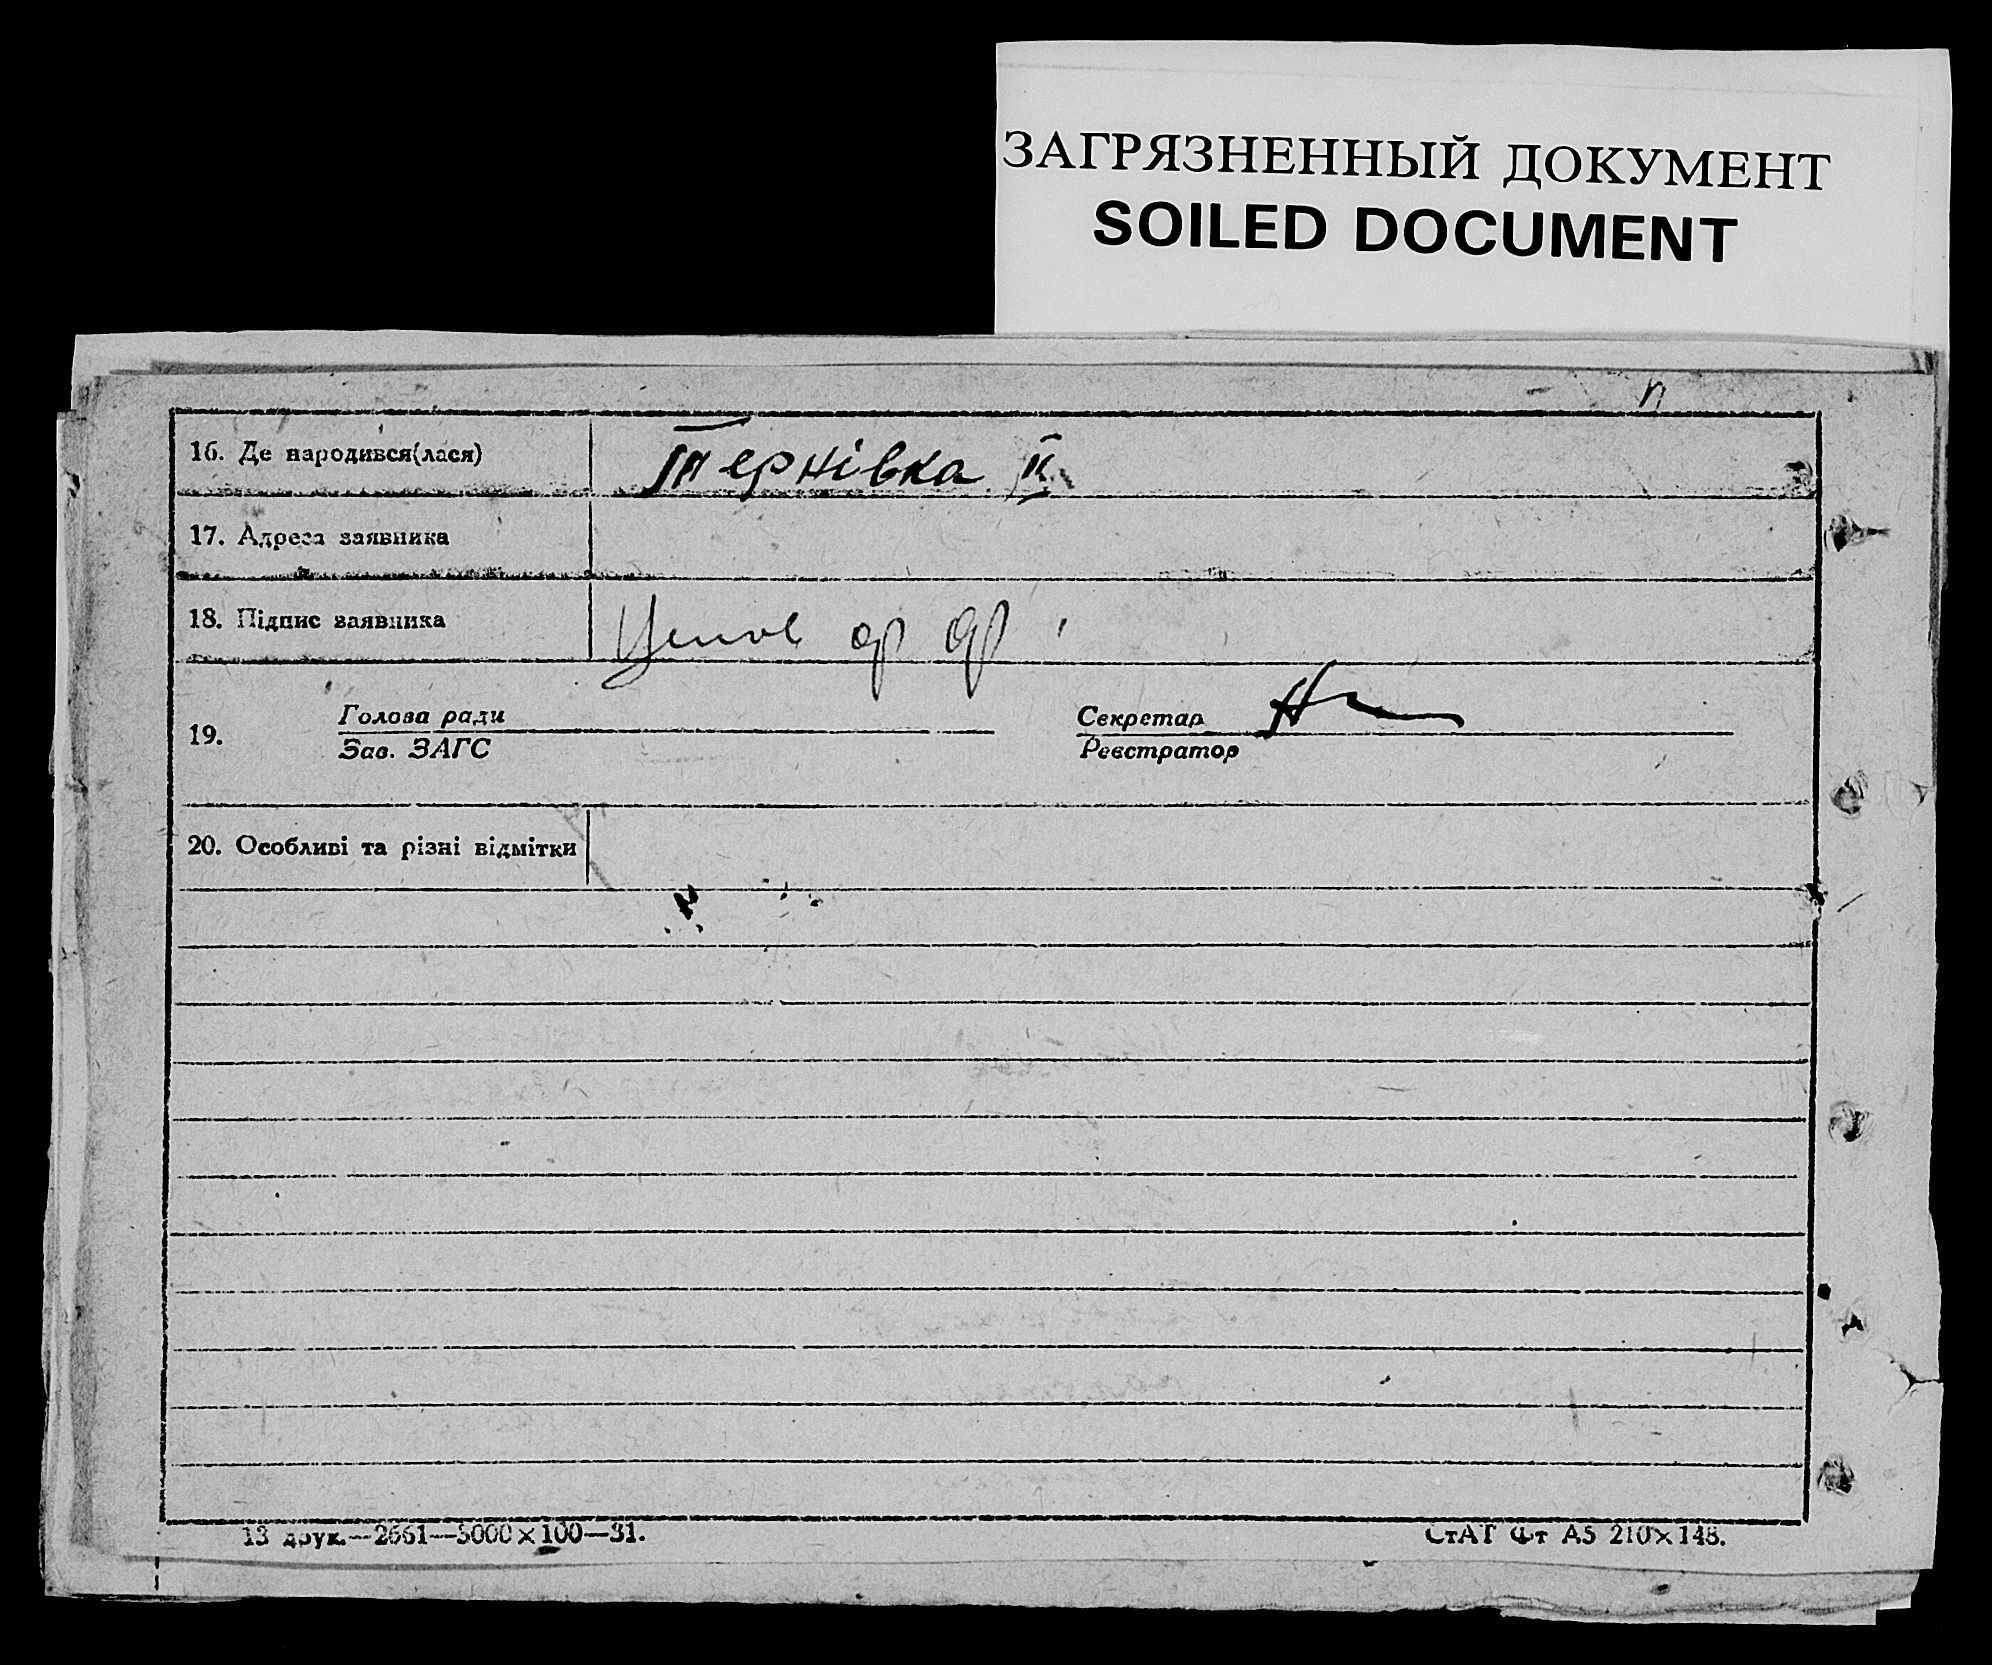 ЗАГРЯЗНЕННЫЙ ДОКУМЕНТ
SOILED DOCUMENT
16. Де народився(лася) Тернівка II
17. Адреса заявника
18. Підпис заявника
19. Голова ради Секретар
Зав. ЗАГС Реєстратор
20. Особливі та різні відмітки
13 друк.—2661—5000×100—31. СтАТ Фт А5 210×148.